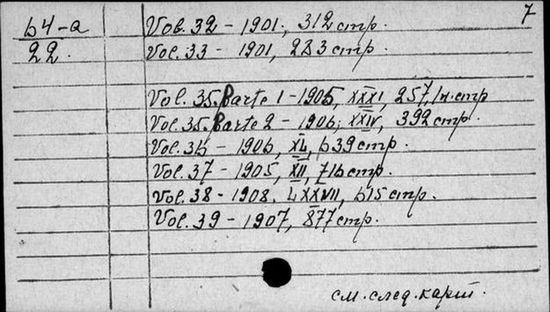 7
64-a
22.
Vol. 32 - 1901, 312 стр.
Vol. 33 - 1901, 283 стр.
Vol. 35. Parte 1 - 1905, XXXI, 257, 1н. стр
Vol. 35. Parte 2 - 1906; XXIV, 392 стр.
Vol. 36 - 1906, XL, 639 стр.
Vol. 37 - 1905, XII, 716 стр.
Vol. 38 - 1908. LXXVII, 615 стр.
Vol. 39 - 1907, 877 стр.
см. след. карт.